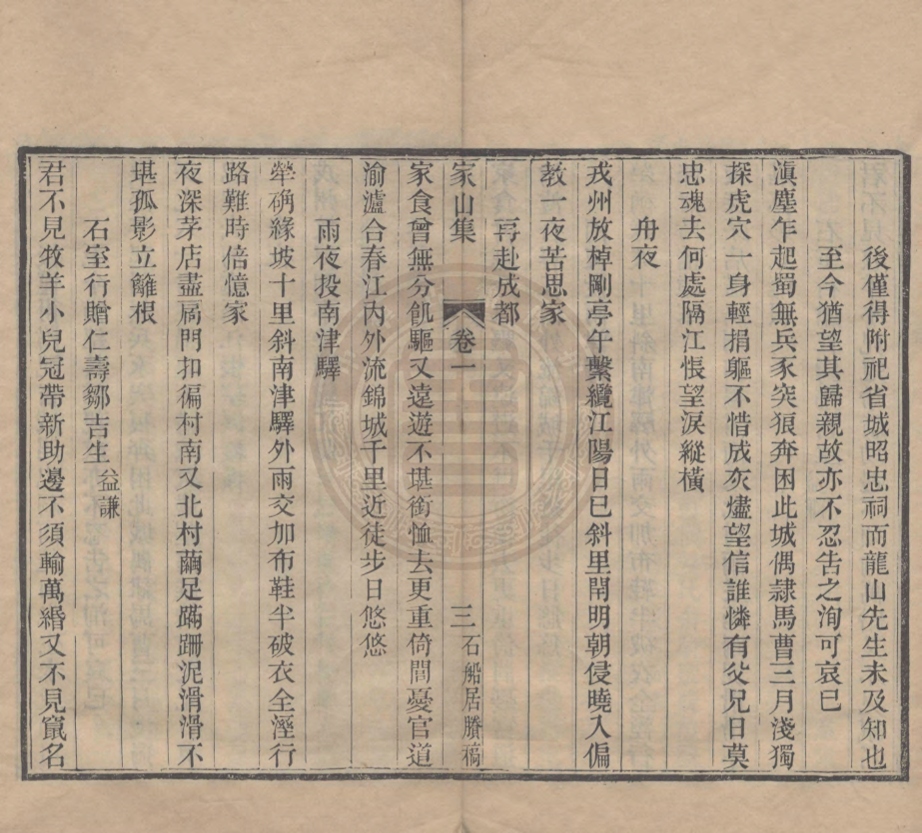 後僅得附祀省城昭忠祠而龍山先生未及知也
至今猶望其歸親故亦不忍告之洵可哀已
滇塵乍起蜀無兵豕突狼奔困此城偶隷馬曹三月淺獨
探虎穴一身輕捐軀不惜成灰燼望信誰憐有父兄日莫
忠魂去何處隔江悵望淚縱橫
舟夜
戎州放棹剛亭午繫纜江陽日已斜里閈明朝侵曉入偏
教一夜苦思家
再赴成都
家山集 卷一 三 石船居賸稿
家食曾無分飢驅又遠遊不堪銜恤去更重倚閭憂官道
渝瀘合春江內外流錦城千里近徒步日悠悠
雨夜投南津驛
犖确緣坡十里斜南津驛外雨交加布鞋半破衣全溼行
路難時倍憶家
夜深茅店盡扃門扣徧村南又北村繭足蹣跚泥滑滑不
堪孤影立籬根
石室行贈仁壽鄒吉生益謙
君不見牧羊小兒冠帶新助邊不須輸萬緡又不見竄名